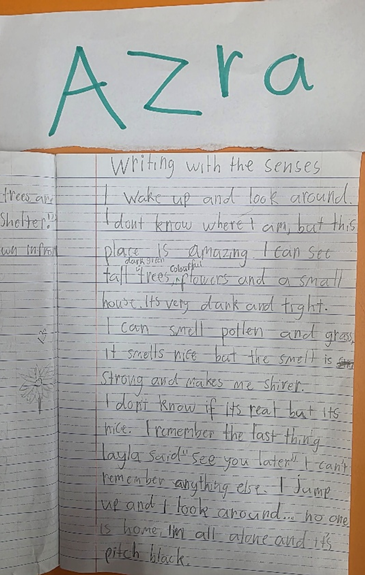 Azra
Writing with the senses
trees are
I wake up and look around.
shelter.
I dont know where I am, but this
own infron
place is amazing I can see
dark green colourful
tall trees, flowers and a small
house. Its very dark and tight.
I can smell pollen and grass,
it smells nice but the smell is
strong and makes me shiver.
I dont know if its real but its
nice. I remember the last thing
layla said "see you later" I can't
remember anything else. I jump
up and I look around... no one
is home. Im all alone and it's
pitch black.